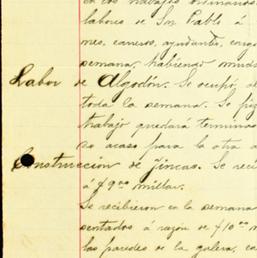 en los trabajos ordinarios
labores de San Pablo á
mes, carreros, ayudantes, carga
semana, habiendo muda
Labor de Algodón. Se ocupó, d
toda la semana. Se piz
trabajo quedará termina
no acaso para la otra d
Construcción de fincas. Se reci
á $9.00 millar.
Se recibieron en la semana
sentados á razón de $10.00 m
las paredes de la galera, ca